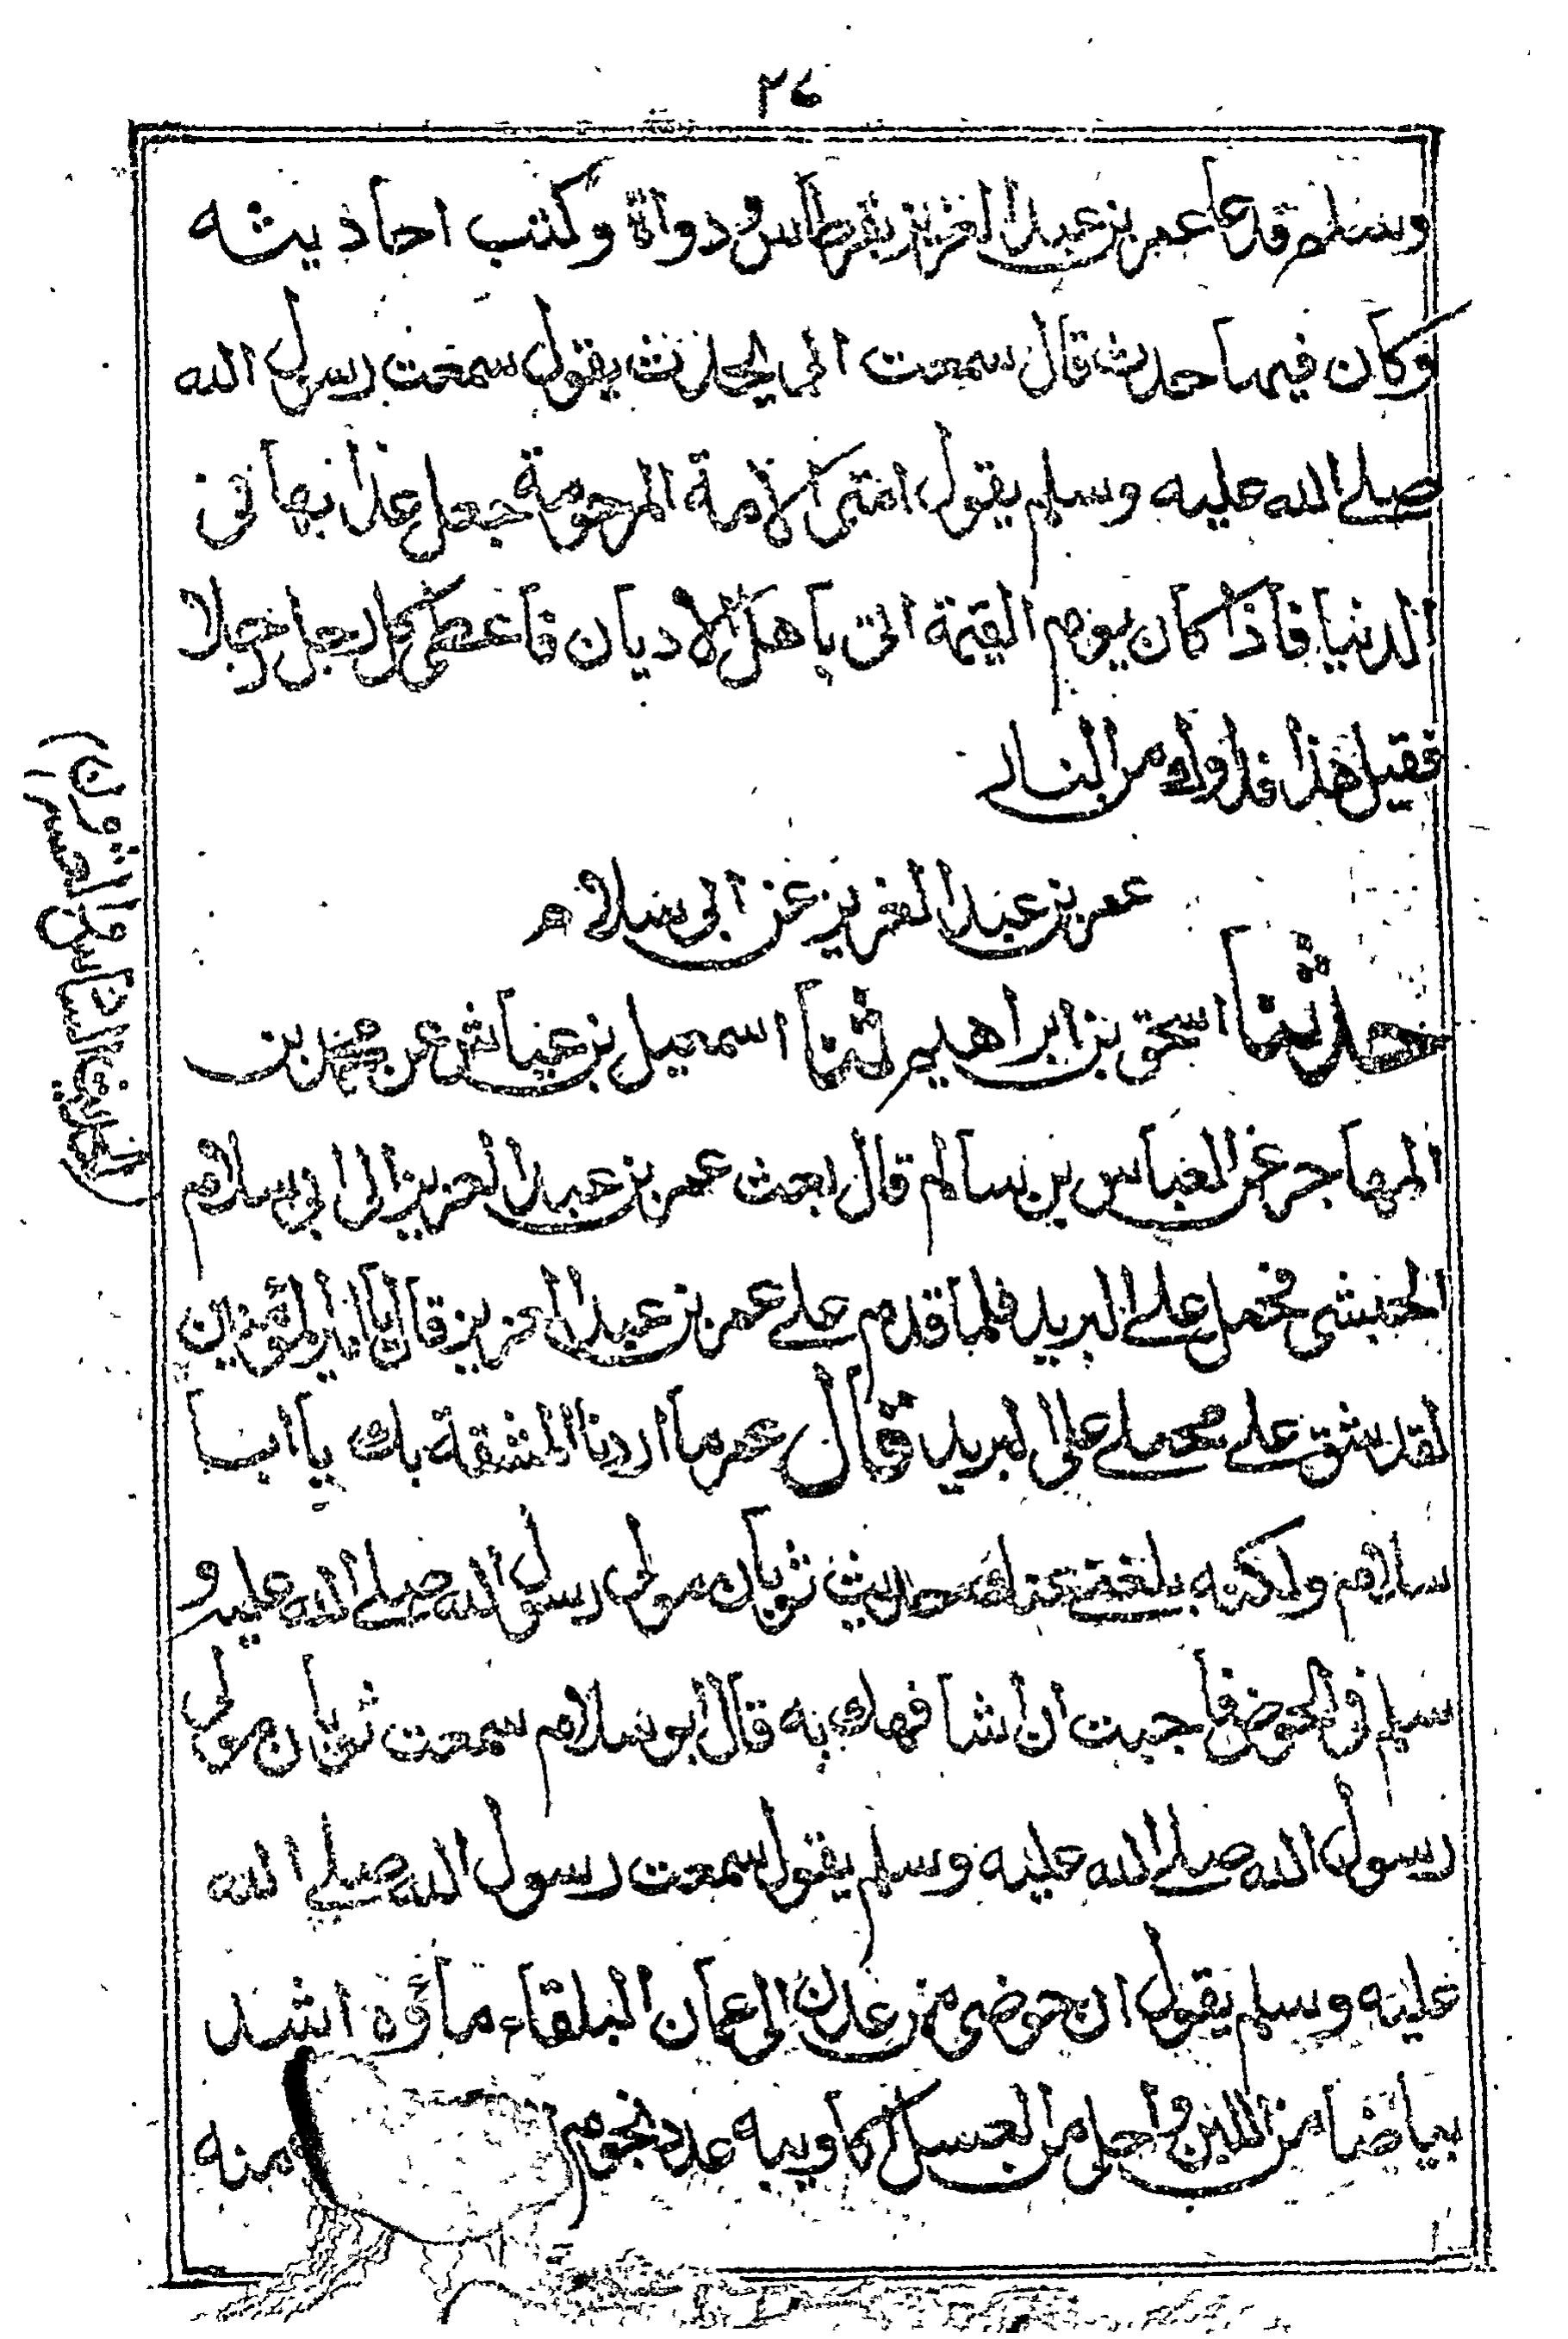 ٢٤
وسلم قدعا عمر بن عبد العزيز بقرطاس ودواة وكتب احاديثه
وكان فيما حدث قال سمعت ابي يحدث يقول سمعت رسول الله
صلے الله عليه وسلم يقول امتى الامة المرحومة جعل عذابها فى
الدنيا فاذا كان يوم القيمة اتى باهل الاديان فاعطى كل رجل رجلا
فقيل هذا فداوك من النار
عمر بن عبد العزيز عن ابى سلام
حدثنا اسحق بن ابراهيم ثنا اسمعيل بن عياش عن محمد بن
المهاجر عن العباس بن سالم قال بعث عمر بن عبد العزيز الى ابى سلام
الحبشى فحمل على البريد فلما قدم علے عمر بن عبد العزيز قال يا امير المؤمنين
لقد شق علے محملے على البريد فقال عمر ما اردنا المشقة بك يا ابا
سلام ولكنه بلغنے عنك حديث ثوبان مولى رسول الله صلے الله عليه و
سلم فى الحوض فاحببت ان اشافهك به قال ابو سلام سمعت ثوبان مولى
رسول الله صلے الله عليه وسلم يقول سمعت رسول الله صلے الله
عليه وسلم يقول ان حوضى من عدن الى عمان البلقاء ماؤه اشد
بياضا من اللبن واحلى من العسل اكاويبه عدد نجوم منه